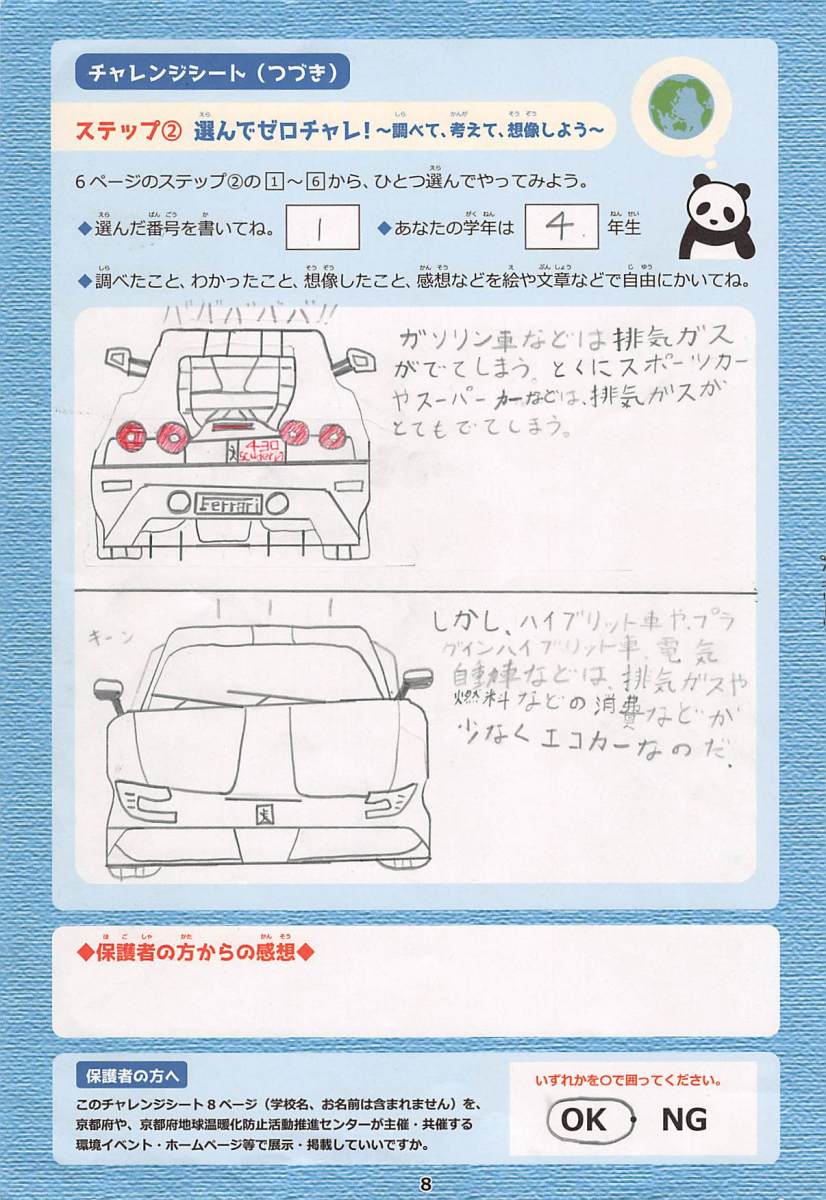 チャレンジシート（つづき）
ステップ② 選んでゼロチャレ！～調べて、考えて、想像しよう～
6ページのステップ②の1～6から、ひとつ選んでやってみよう。
◆選んだ番号を書いてね。 1 ◆あなたの学年は 4. 年生
◆調べたこと、わかったこと、想像したこと、感想などを絵や文章などで自由にかいてね。
ババババババ!!
ガソリン車などは排気ガス
がでてしまう。とくにスポーツカー
やスーパーカーなどは、排気ガスが
とてもでてしまう。
430
scuderia
Ferrari
キーン
しかし、ハイブリット車や、プラ
グインハイブリット車、電気
自動車などは、排気ガスや
燃料などの消費などが
少なくエコカーなのだ、
◆保護者の方からの感想◆
保護者の方へ
このチャレンジシート8ページ（学校名、お名前は含まれません）を、
京都府や、京都府地球温暖化防止活動推進センターが主催・共催する
環境イベント・ホームページ等で展示・掲載していいですか。
いずれかを○で囲ってください。
OK・NG
8